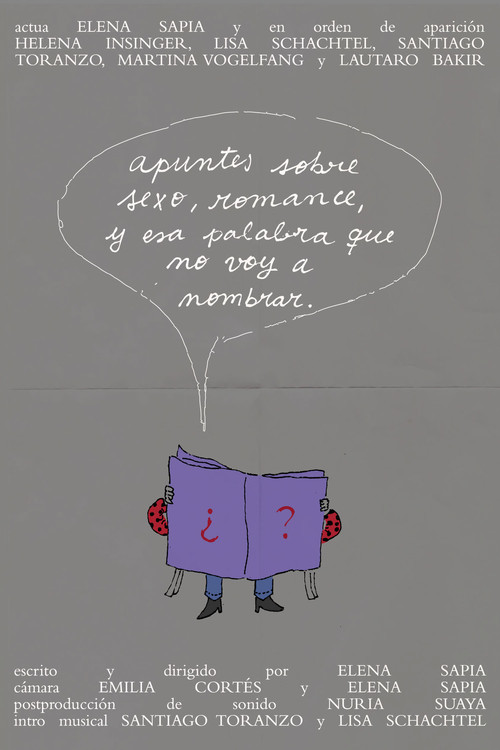 actua ELENA SAPIA y en orden de aparición
HELENA INSINGER, LISA SCHACHTEL, SANTIAGO
TORANZO, MARTINA VOGELFANG y LAUTARO BAKIR
apuntes sobre
sexo, romance,
y esa palabra que
no voy a
nombrar.
¿ ?
escrito y dirigido por ELENA SAPIA
cámara EMILIA CORTÉS y ELENA SAPIA
postproducción de sonido NURIA SUAYA
intro musical SANTIAGO TORANZO y LISA SCHACHTEL